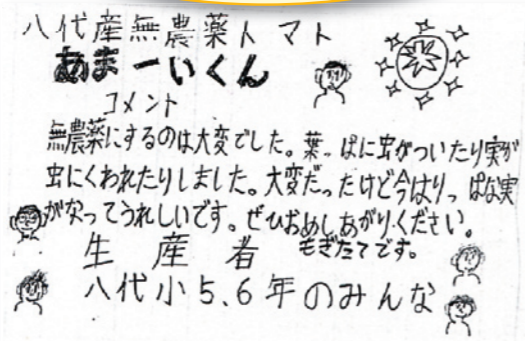 八代産無農薬トマト
あまーいくん
コメント
無農薬にするのは大変でした。葉っぱに虫がついたり実が
虫にくわれたりしました。大変だったけど今はりっぱな実
がなってうれしいです。ぜひおめしあがりください。
もぎたてです。
生産者
八代小5、6年のみんな